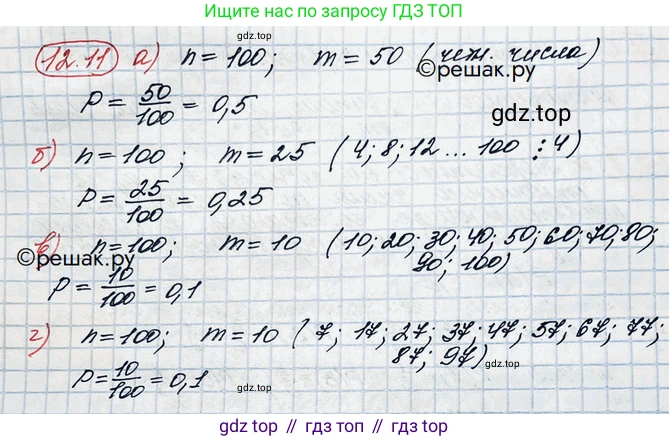 Ищите нас по запросу ГДЗ ТОП
12.11 а) n = 100; m = 50 (чет. числа)
©reшак.ру
P = 50/100 = 0,5
gdz.top
б) n = 100; m = 25 (4; 8; 12 ... 100 ⋮ 4)
P = 25/100 = 0,25
в) n = 100; m = 10 (10; 20; 30; 40; 50; 60; 70; 80;
©решак.ру
90; 100)
gdz.top
P = 10/100 = 0,1
г) n = 100; m = 10 (7; 17; 27; 37; 47; 57; 67; 77;
87; 97)
P = 10/100 = 0,1
gdz.top
gdz.top // гдз.топ // gdz.top // гдз.топ